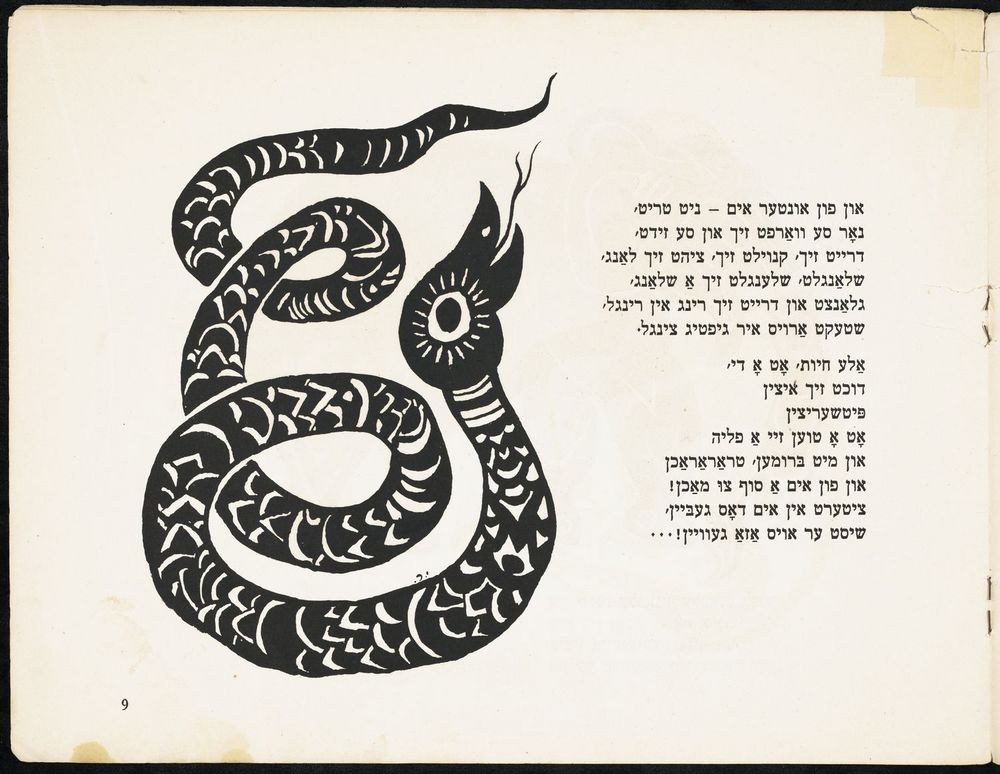 און פון אונטער אים – ניט טריט,
נאָר סע וואַרפט זיך און סע זידט,
דרייט זיך, קנוילט זיך, ציהט זיך לאַנג,
שלאַנגלט, שלענגלט זיך אַ שלאַנג,
גלאַנצט און דרייט זיך רינג אין רינגל,
שטעקט אַרויס איר גיפטיג צינגל.
אַלע חיות, אָט אָ די,
דוכט זיך איצין
פּיטשעריצין
אָט אָ טוען זיי אַ פליה
און מיט ברומען, טראַראַראַכן
און פון אים אַ סוף צו מאַכן!
ציטערט אין אים דאָס געביין,
שיסט ער אויס אַזאַ געוויין!...
9